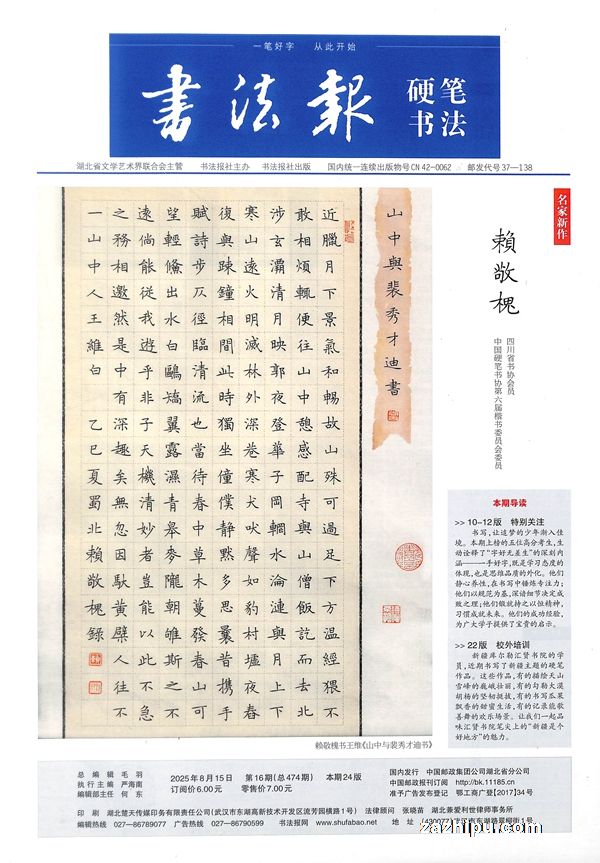 一笔好字 从此开始
书法报
硬笔
书法
湖北省文学艺术界联合会主管 书法报社主办 书法报社出版 国内统一连续出版物号CN 42-0062 邮发代号37—138
山中與裴秀才迪書
近臘月下景氣和暢故山殊可過足下方溫經猥不
敢相煩輒便往山中憩感配寺與山僧飯訖而去北
涉玄灞清月映郭夜登華子岡輞水淪漣與月上下
寒山遠火明滅林外深巷寒犬吠聲如豹村墟夜舂
復與踈鐘相間此時獨坐僮僕静默多思曩昔携手
賦詩步仄徑臨清流也當待春中草木蔓發春山可
望輕鯈出水白鷗矯翼露濕青皋麥隴朝雊斯之不
遠倘能從我遊乎非子天機清妙者豈能以此不急
之務相邀然是中有深趣矣無忽因馱黃檗人往不
一山中人王維白 乙巳夏蜀北賴敬槐錄
赖敬槐书王维《山中与裴秀才迪书》
名家新作
賴敬槐
四川省书协会员
中国硬笔书协第六届楷书委员会委员
本期导读
>> 10-12版 特别关注
书写,让追梦的少年渐入佳
境。本期上榜的五位高分考生,生
动诠释了“字好无差生”的深刻内
涵——一手好字,既是学习态度的
体现,也是思维品质的外化。他们
静心养性,在书写中锤炼专注力;
他们以规范为基,深谙细节决定成
败之理;他们锻就持之以恒精神,
习惯成就未来。他们的成功经验,
为广大学子提供了宝贵的启示。
>> 22版 校外培训
新疆库尔勒汇贤书院的学
员,近期书写了新疆主题的硬笔
作品。这些作品,有的描绘天山
雪峰的巍峨壮丽,有的勾勒大漠
胡杨的坚韧挺拔,有的书写瓜果
飘香的甜蜜生活,有的记录能歌
善舞的欢乐场景。让我们一起品
味汇贤书院笔尖上的“新疆是个
好地方”的魅力。
总编辑 毛 羽
执行主编 严海南
编辑部主任 何 东
2025年8月15日 第16期(总474期) 本期24版
订阅价6.00元 零售价7.00元
国内发行 中国邮政集团公司湖北省分公司
中国邮政报刊订阅 http://bk.11185.cn
准予广告发布登记 鄂工商广登[2017]34号
印刷 湖北楚天传媒印务有限责任公司(武汉市东湖高新技术开发区流芳园横路1号) 法律顾问 张晓苗 湖北兼爱利世律师事务所
编辑热线 027-86789077 广告热线 027-86790599 书法报网 www.shufabao.net 地址 (430077)武汉市东湖路翠柳街1号
zazhipu.com